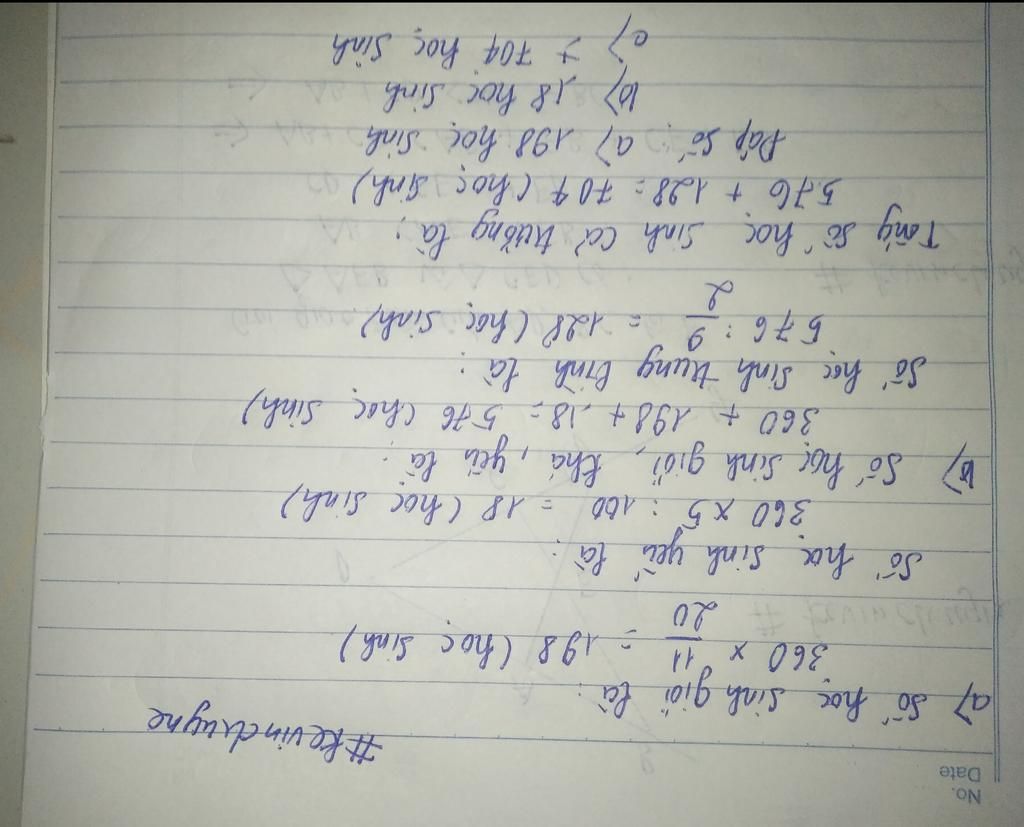 No.
Date
#kevinduyne
a) Số học sinh giỏi là:
360 x 11/20 = 198 (học sinh)
Số học sinh yếu là:
360 x 5 : 100 = 18 (học sinh)
b) Số học sinh giỏi, khá, yếu là:
360 + 198 + 18 = 576 (học sinh)
Số học sinh trung bình là:
576 : 9/2 = 128 (học sinh)
Tổng số học sinh cả trường là:
576 + 128 = 704 (học sinh)
Đáp số a) 198 học sinh
b) 18 học sinh
c) 704 học sinh